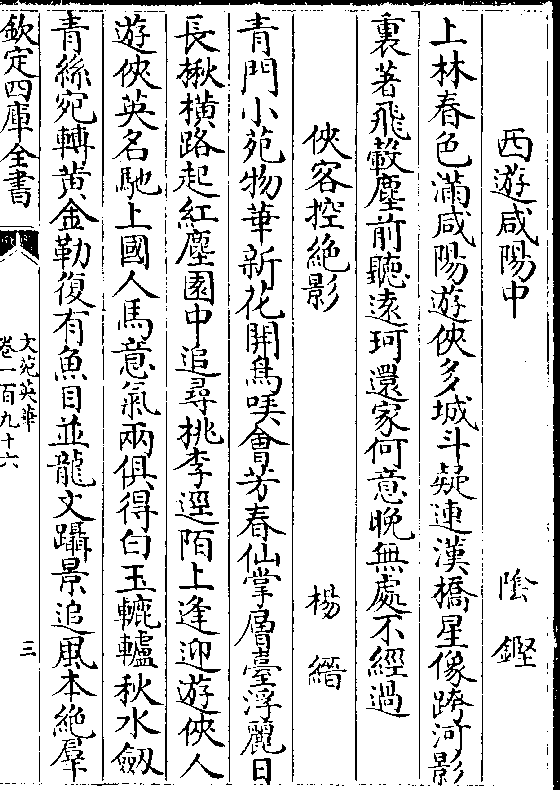 西遊咸陽中　陰鏗
上林春色滿咸陽遊俠多城斗疑連漢橋星像跨河影
裏著飛轂塵前聽遠珂還家何意晚無處不經過
俠客控絶影　楊縉
青門小苑物華新花開鳥哢會芳春仙掌層臺浮麗日
長楸橫路起紅塵園中追尋桃李逕陌上逢迎遊俠人
遊俠英名馳上國人馬意氣兩俱得白玉轆轤秋水劔
青絲宛轉黄金勒復有魚目並龍文躡景追風本絶羣
欽定四庫全書
文苑英華
卷一百九十六
三